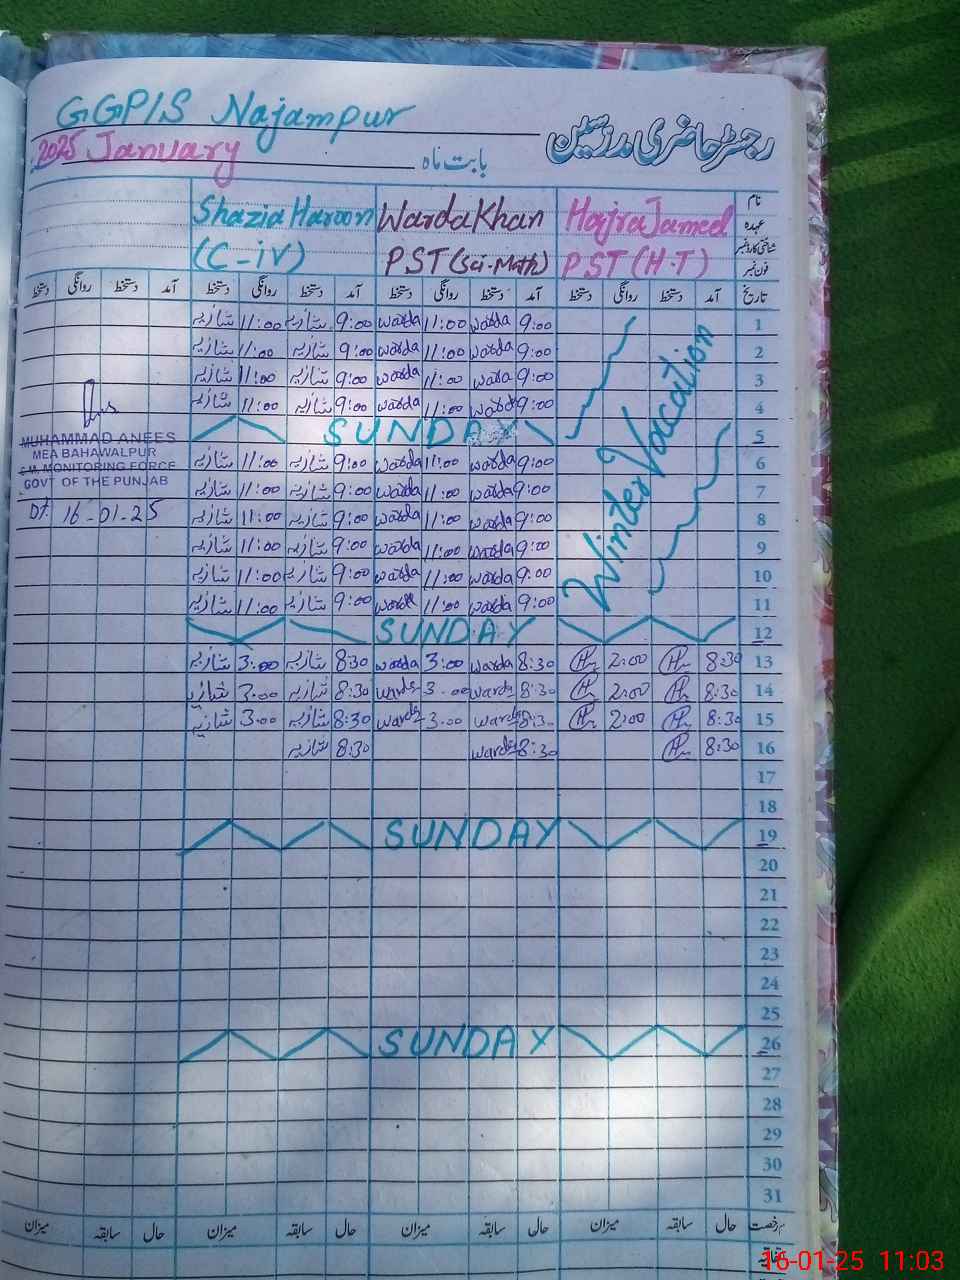 GGPIS Najampur
رجسٹر حاضری مدرسین
2025 January بابت ماہ
Shazia Haroon Warda Khan Hajra Jameel نام
عہدہ
(C-iv) PST (Sci-Math) PST (H.T) شناختی کارڈ نمبر
فون نمبر
تاریخ آمد دستخط روانگی دستخط آمد دستخط روانگی دستخط آمد دستخط روانگی دستخط آمد دستخط روانگی دستخط
شازیہ 11:00 شازیہ 9:00 warda 11:00 warda 9:00 1
شازیہ 11:00 شازیہ 9:00 warda 11:00 warda 9:00 2
شازیہ 11:00 شازیہ 9:00 warda 11:00 wara 9:00 3
شازیہ 11:00 شازیہ 9:00 warda 11:00 warda 9:00 4
SUNDAY 5
شازیہ 11:00 شازیہ 9:00 warda 11:00 warda 9:00 6
شازیہ 11:00 شازیہ 9:00 warda 11:00 warda 9:00 7
شازیہ 11:00 شازیہ 9:00 warda 11:00 warda 9:00 8
شازیہ 11:00 شازیہ 9:00 warda 11:00 warda 9:00 9
شازیہ 11:00 شازیہ 9:00 warda 11:00 warda 9:00 10
شازیہ 11:00 شازیہ 9:00 warda 11:00 warda 9:00 11
Winter Vocation
MUHAMMAD ANEES
MEA BAHAWALPUR
C.M. MONITORING FORCE
GOVT OF THE PUNJAB
Dt 16-01-25
SUNDAY 12
شازیہ 3:00 شازیہ 8:30 warda 3:00 warda 8:30 2:00 8:30 13
شازیہ 3:00 شازیہ 8:30 warda 3:00 warda 8:30 2:00 8:30 14
شازیہ 3:00 شازیہ 8:30 warda 3:00 warda 8:30 2:00 8:30 15
شازیہ 8:30 warda 8:30 8:30 16
17
18
SUNDAY 19
20
21
22
23
24
25
SUNDAY 26
27
28
29
30
31
رخصت حال سابقہ میزان حال سابقہ میزان حال سابقہ میزان حال سابقہ میزان
16-01-25 11:03